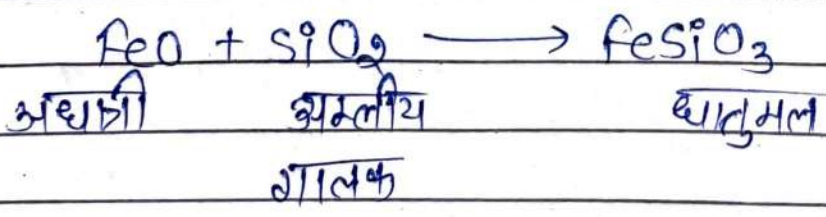 FeO + SiO₂ ⟶ FeSiO₃
अधात्री अम्लीय धातुमल
गालक